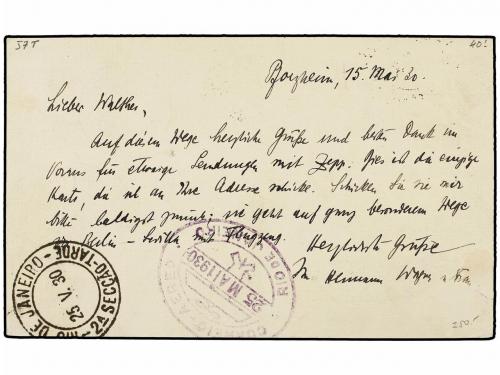 37 T
40!
15. Mai 30.
Lieber Walther,
Auf diesem Wege herzliche Grüße und besten Dank im
Voraus für etwaige Sendungen mit Zepp. Dies ist die einzige
Karte, die ich an Ihre Adresse schicke. Schicken Sie sie mir
bitte baldigst zurück; sie geht auf ganz besonderem Wege
Berlin – mit Flugzeug.
Herzlichste Grüße
Ihr Hermann
RIO DE JANEIRO - 2ª SECÇÃO-TARDE
25 V 30
CORREIO AEREO
25 MAI 1930
RIO DE JANEIRO
250.-